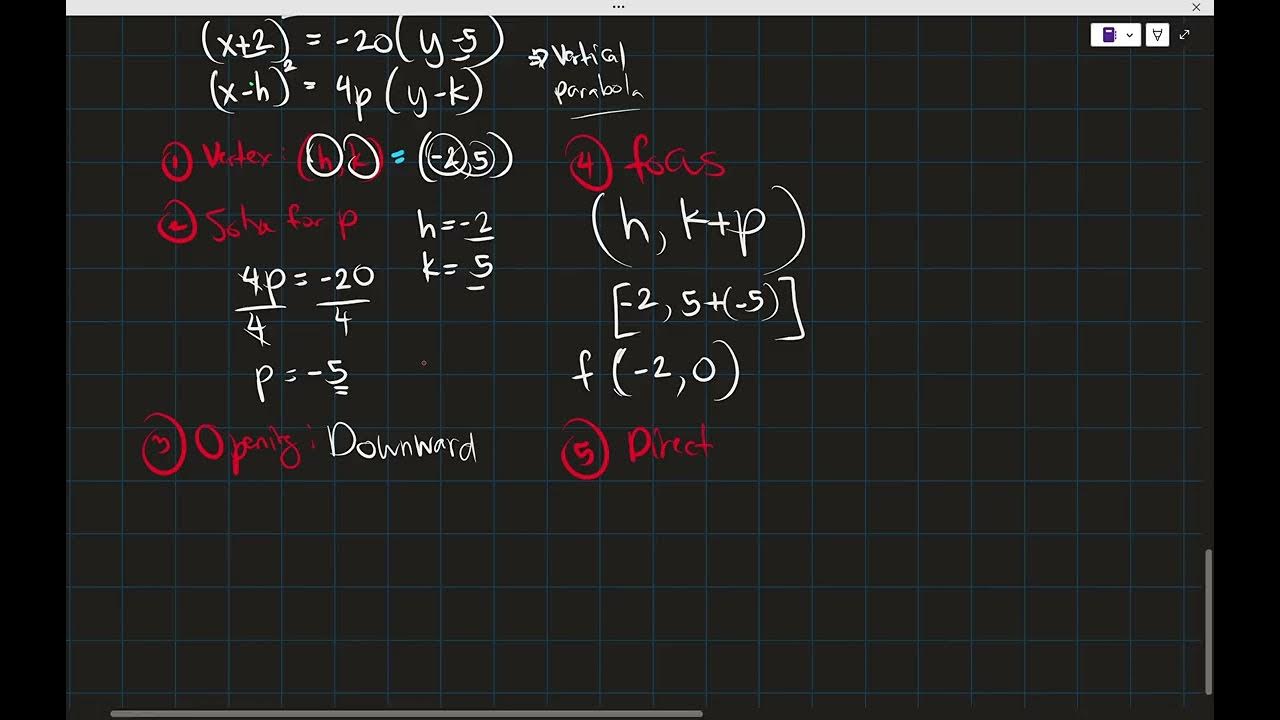 (x+2) = -20(y-5)
⇒ Vertical
parabola
(x-h)² = 4p(y-k)
① Vertex: (h,k) = (-2,5)
② Solve for p
h=-2
k=5
4p = -20
4 4
p = -5
③ Opening: Downward
④ focus
(h, k+p)
[-2, 5+(-5)]
f(-2,0)
⑤ Direct